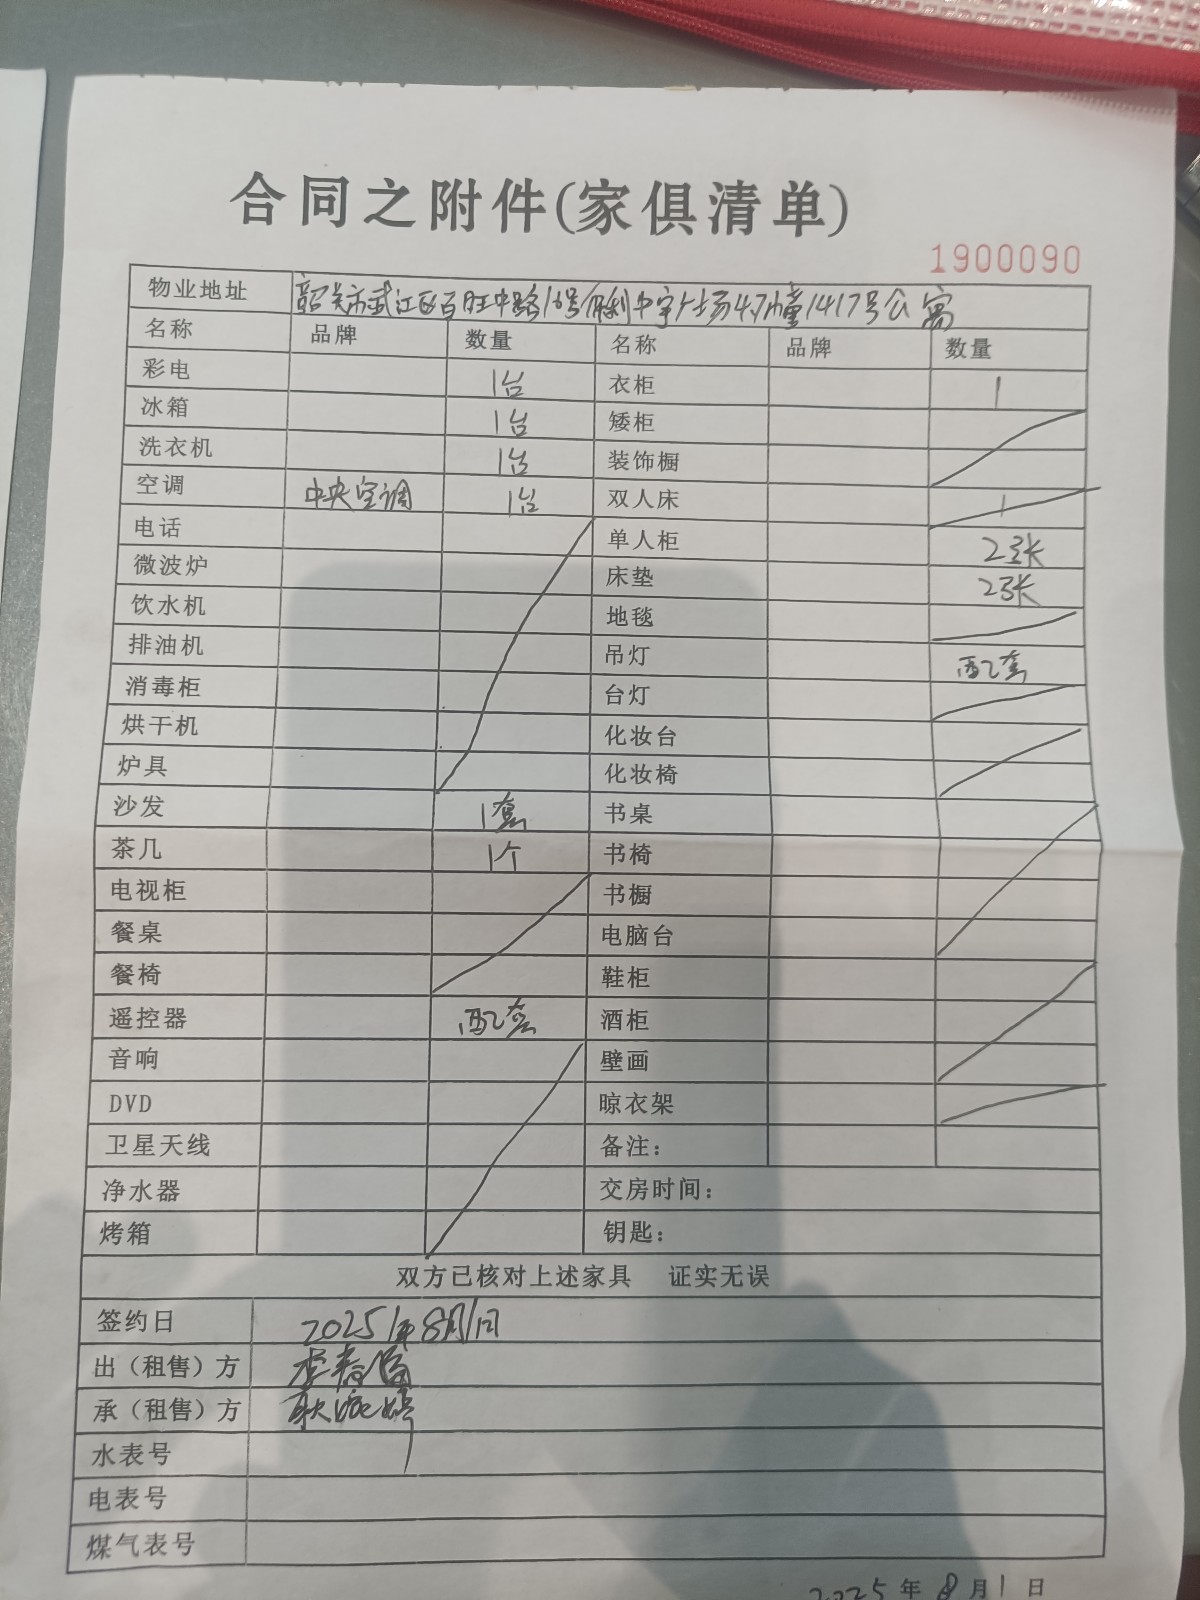 合同之附件(家俱清单)
1900090
物业地址 韶关市武江区百旺中路16号保利中宇广场4幢1417号公寓
名称 品牌 数量 名称 品牌 数量
彩电 1台 衣柜 1
冰箱 1台 矮柜
洗衣机 1台 装饰橱
空调 中央空调 1台 双人床 1
电话 单人柜 2张
微波炉 床垫 2张
饮水机 地毯
排油机 吊灯 配套
消毒柜 台灯
烘干机 化妆台
炉具 化妆椅
沙发 1套 书桌
茶几 1个 书椅
电视柜 书橱
餐桌 电脑台
餐椅 鞋柜
遥控器 配套 酒柜
音响 壁画
DVD 晾衣架
卫星天线 备注：
净水器 交房时间：
烤箱 钥匙：
双方已核对上述家具 证实无误
签约日 2025年8月1日
出（租售）方 李春
承（租售）方
水表号
电表号
煤气表号
2025年8月1日